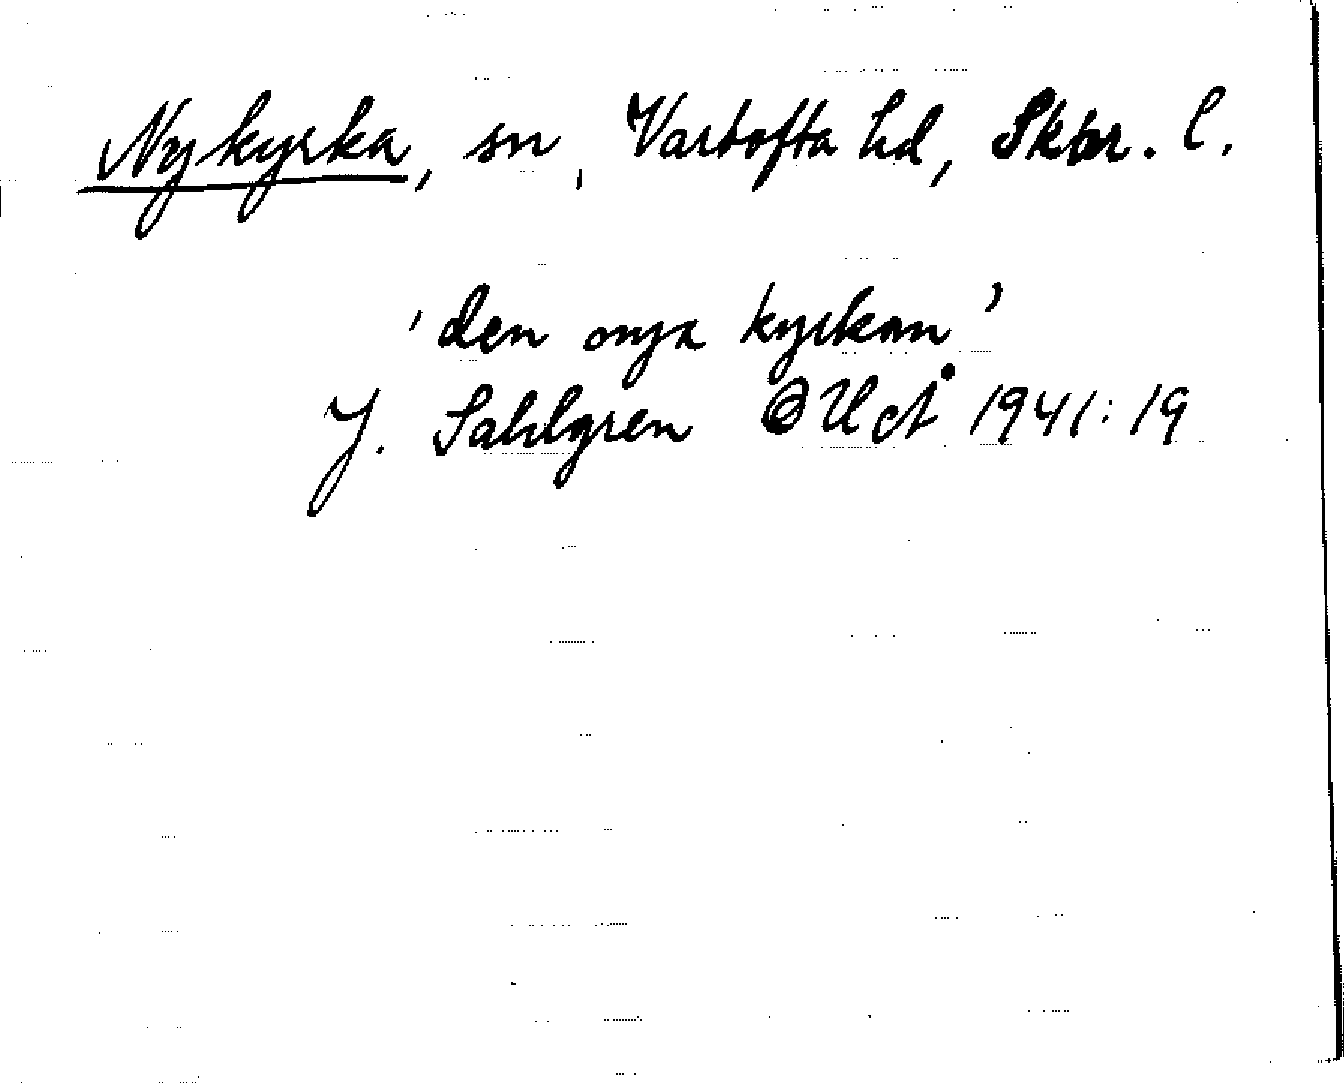 Nykyrka, sn, Vartofta hd, Skbr. l.
'den nya kyrkan'
J. Sahlgren UCÅ 1941:19